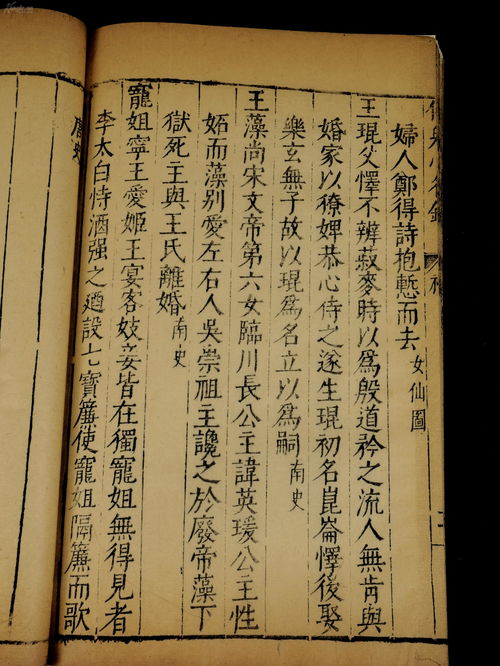 婦人鄭得詩抱慙而去 女仙圖
王琨父懌不辨菽麥時以爲殷道矜之流人無肯與
婚家以獠婢恭心侍之遂生琨初名崑崙懌後娶
樂玄無子故以琨爲名立以爲嗣 南史
王藻尚宋文帝第六女臨川長公主諱英瑗公主性
妬而藻别愛左右人吳崇祖主讒之於廢帝藻下
獄死主與王氏離婚 南史
寵姐寧王愛姬王宴客妓妾皆在獨寵姐無得見者
李太白恃酒强之廼設七寶簾使寵姐隔簾而歌
唐史